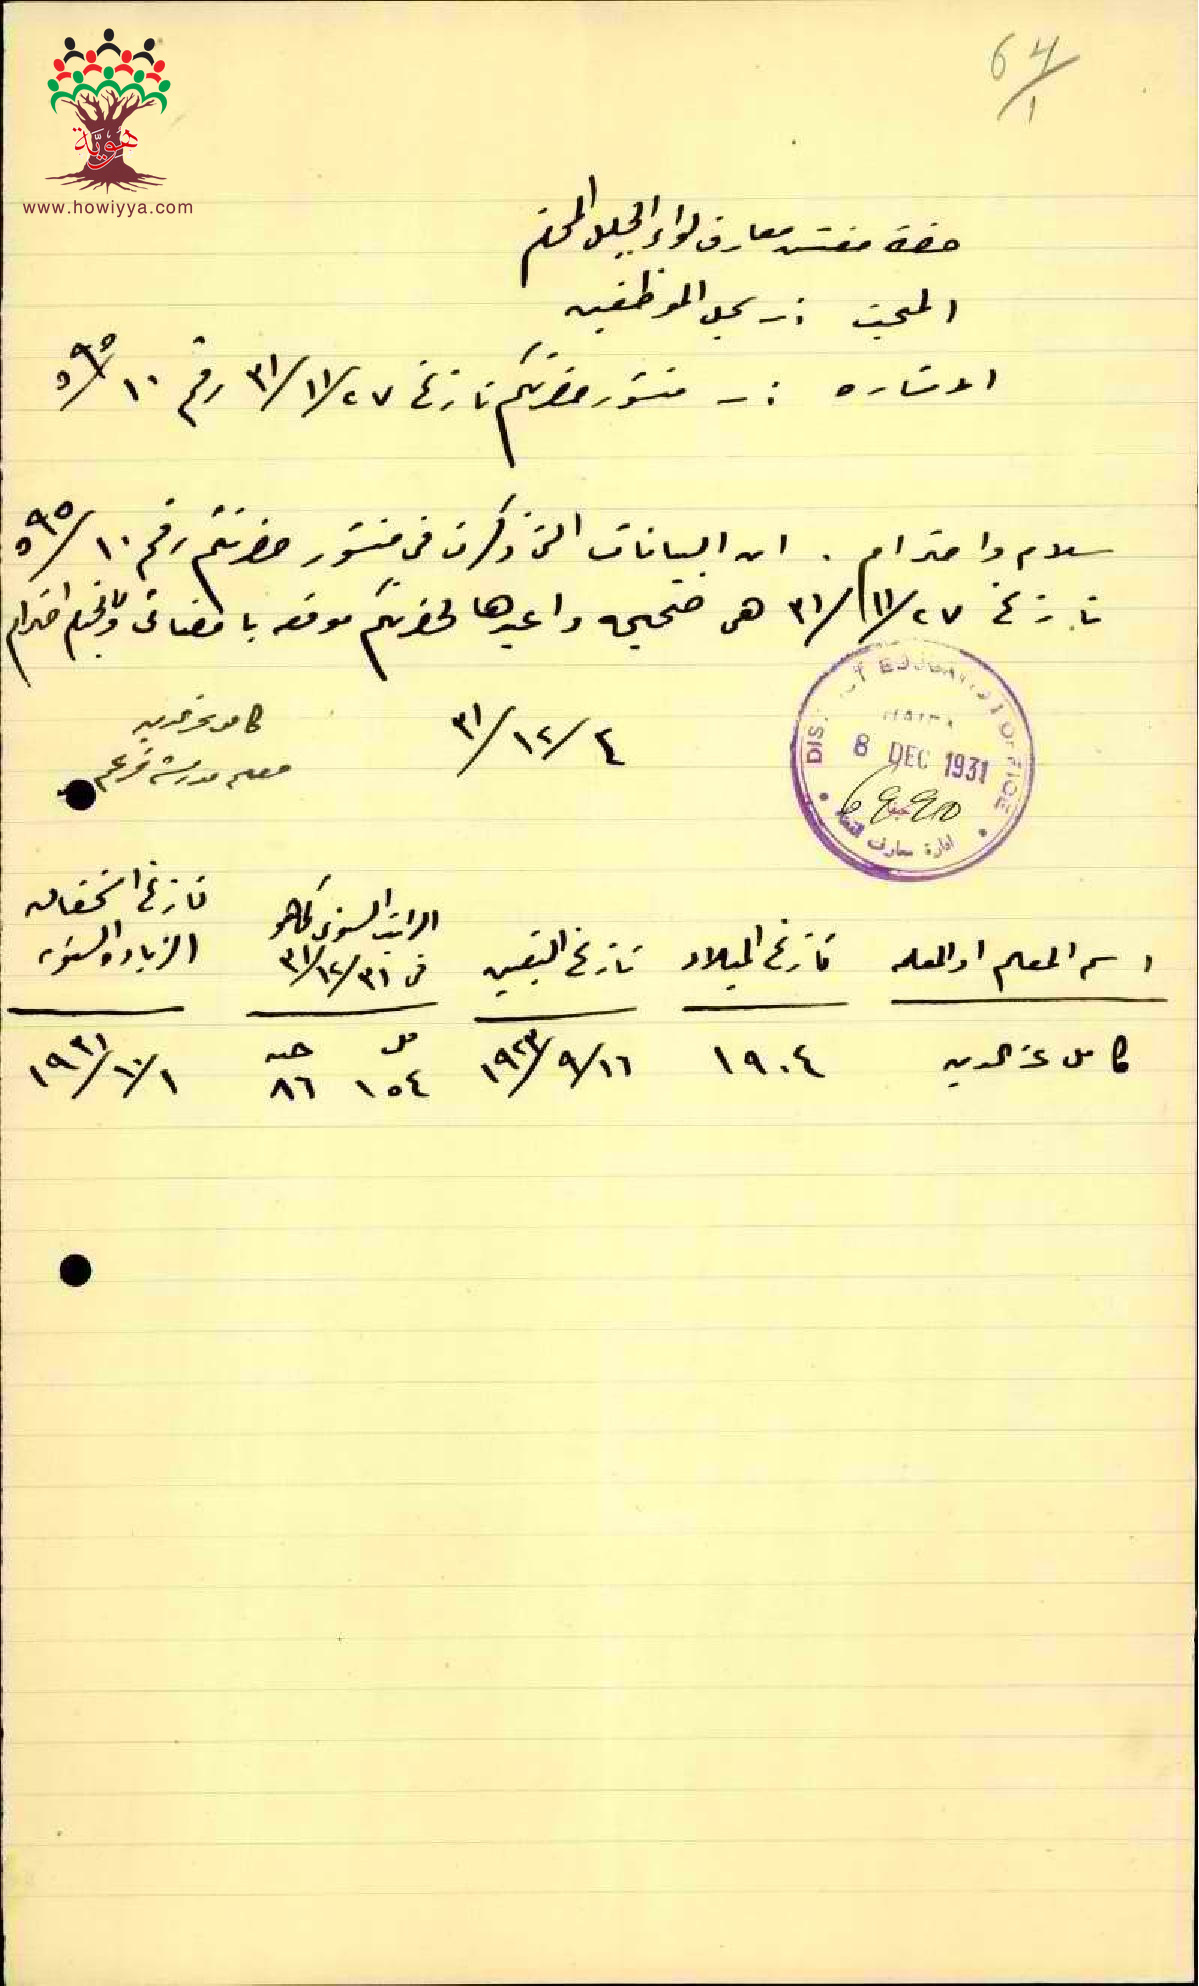 64/1
هوية
www.howiyya.com
حضرة مفتش معارف لواء الجليل المحترم
المبحث :- سجل الموظفين
الاشاره :- منشور حضرتكم تاريخ ٢٧/١١/٣١ رقم ١٠/٥٩٥
سلام واحترام . ان البيانات التي ذكرت في منشور حضرتكم رقم ١٠/٥٩٥
تاريخ ٢٧/١١/٣١ هي صحيحه واعيدها لحضرتكم موقعه بامضائي ولكم احترام
٤/١٢/٣١
كامل عز الدين
معلم مدرسة
DISTRICT EDUCATION OFFICE
HAIFA
8 DEC 1931
ادارة معارف
اسم المعلم او المعلمه
تاريخ الميلاد
تاريخ التعيين
الراتب السنوي كما هو في ٣١/١٢/٣١
تاريخ استحقاق الزياده السنويه
كامل عز الدين
١٩٠٤
١٦/٩/١٩٢٣
مل جنيه
١٥٤ ٨٦
١/١٠/١٩٣١